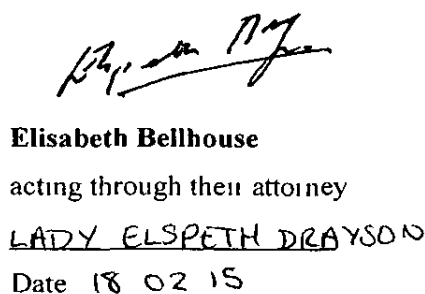 Elisabeth Bellhouse
acting through their attorney
LADY ELSPETH DRAYSON
Date 18 02 15